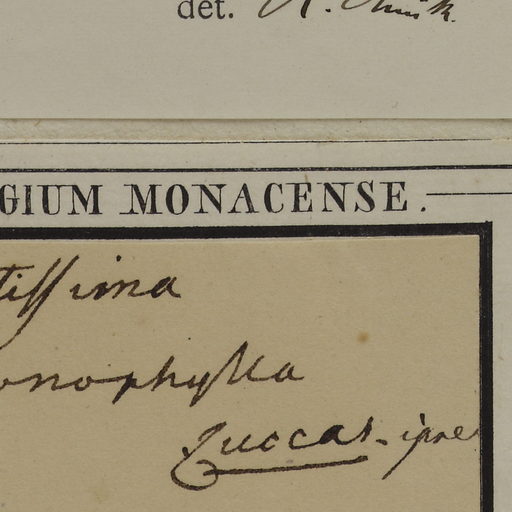 det.
GIUM MONACENSE.
tissima
onophylla
Zuccar. ipse